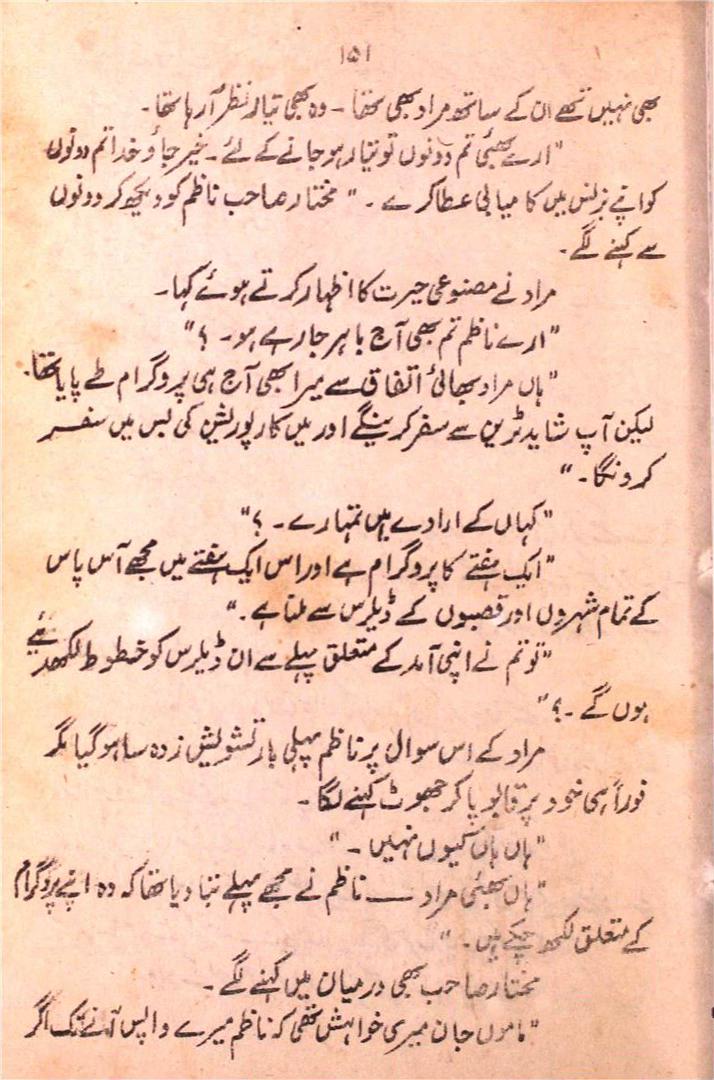 ۱۵۱
بھی نہیں تھے ان کے ساتھ مراد بھی تھا ۔ وہ بھی تیار نظر آ رہا تھا ۔
"ارے بھئی تم دونوں تو تیار ہو جانے کے لئے ۔ خیر جاؤ خدا تم دونوں
کو اپنے بزنس میں کامیابی عطا کرے ۔" مختار صاحب ناظم کو دیکھ کر دونوں
سے کہنے لگے ۔
مراد نے مصنوعی حیرت کا اظہار کرتے ہوئے کہا ۔
"ارے ناظم تم بھی آج باہر جا رہے ہو ۔ ؟"
"ہاں مراد بھائی اتفاق سے میرا بھی آج ہی پروگرام طے پایا تھا ۔
لیکن آپ شاید ٹرین سے سفر کرینگے اور میں کارپوریشن کی بس میں سفر
کرونگا ۔"
"کہاں کے ارادے ہیں تمہارے ۔ ؟"
"ایک ہفتے کا پروگرام ہے اور اس ایک ہفتے میں مجھے آس پاس
کے تمام شہروں اور قصبوں کے ڈیلرس سے ملنا ہے ۔"
"تو تم نے اپنی آمد کے متعلق پہلے سے ان ڈیلرس کو خطوط لکھ دئیے
ہوں گے ۔ ؟"
مراد کے اس سوال پر ناظم پہلی بار تشویش زدہ سا ہو گیا مگر
فوراً ہی خود پر قابو پا کر جھوٹ کہنے لگا ۔
"ہاں ہاں کیوں نہیں ۔"
"ہاں بھئی مراد ـــــ ناظم نے مجھے پہلے بتا دیا تھا کہ وہ اپنے پروگرام
کے متعلق لکھ چکے ہیں ۔"
مختار صاحب بھی درمیان میں کہنے لگے ۔
"ماموں جان میری خواہش تھی کہ ناظم میرے واپس آنے تک اگر